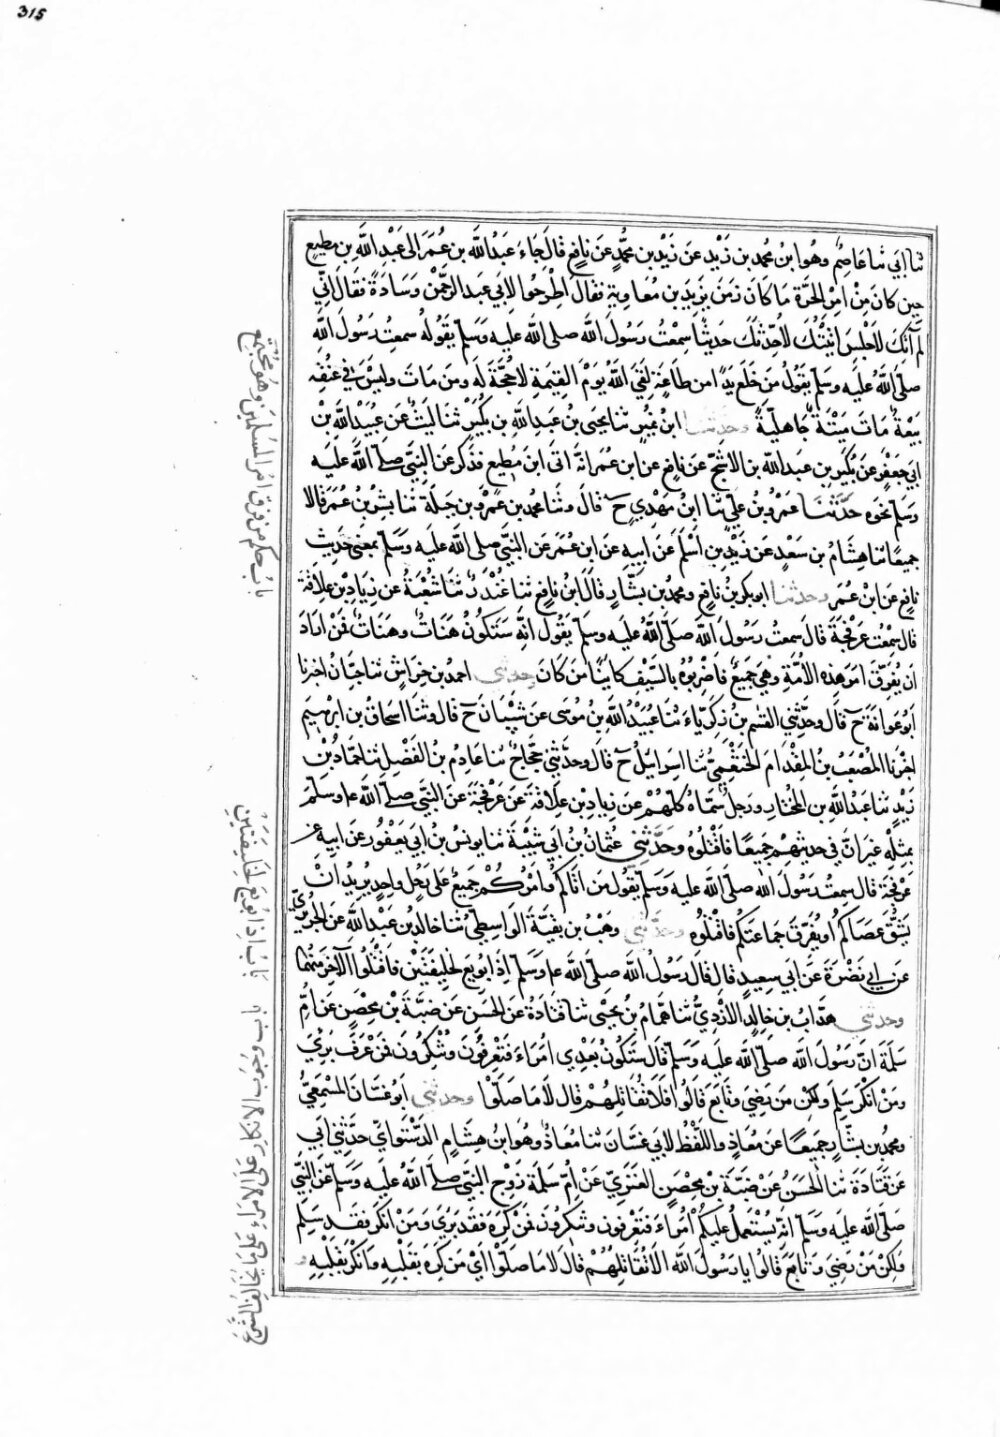 315
ثنا ابي ثنا عاصم وهو ابن محمد بن زيد عن زيد بن محمد عن نافع قال جاء عبد الله بن عمر الى عبد الله بن مطيع
حين كان من امر الحرة ما كان زمن يزيد بن معاوية فقال اطرحوا لابي عبد الرحمن وسادة فقال اني
لم آتك لاجلس اتيتك لاحدثك حديثا سمعت رسول الله صلى الله عليه وسلم يقوله سمعت رسول الله
صلى الله عليه وسلم يقول من خلع يدا من طاعة لقي الله يوم القيمة لا حجة له ومن مات وليس في عنقه
بيعة مات ميتة جاهلية وحدثنا ابن نمير ثنا يحيى بن عبد الله بن بكير ثنا ليث عن عبيد الله بن
ابي جعفر عن بكير بن عبد الله بن الاشج عن نافع عن ابن عمر انه اتى ابن مطيع فذكر عن النبي صلى الله عليه
وسلم نحوه حدثنا عمرو بن علي ثنا ابن مهدي ح قال وثنا محمد بن عمرو بن جبلة ثنا بشر بن عمر قالا
جميعا ثنا هشام بن سعد عن زيد بن اسلم عن ابيه عن ابن عمر عن النبي صلى الله عليه وسلم بمعنى حديث
نافع عن ابن عمر وحدثنا ابو بكر بن نافع ومحمد بن بشار قال ابن نافع ثنا غندر ثنا شعبة عن زياد بن علاقة
قال سمعت عرفجة قال سمعت رسول الله صلى الله عليه وسلم يقول انه ستكون هنات وهنات فمن اراد
ان يفرق امر هذه الامة وهي جميع فاضربوه بالسيف كاينا من كان وحدثني احمد بن خراش ثنا حبان اخبرنا
ابو عوانة ح قال وحدثني القسم بن زكرياء ثنا عبيد الله بن موسى عن شيبان ح قال وثنا اسحاق بن ابرهيم
اخبرنا المصعب بن المقدام الخثعمي ثنا اسرائيل ح قال وحدثني حجاج ثنا عارم بن الفضل ثنا حماد بن
زيد ثنا عبد الله بن المختار ورجل سماه كلهم عن زياد بن علاقة عن عرفجة عن النبي صلى الله ع وسلم
بمثله غير ان في حديثهم جميعا فاقتلوه وحدثني عثمان بن ابي شيبة ثنا يونس بن ابي يعفور عن ابيه عن
عرفجة قال سمعت رسول الله صلى الله عليه وسلم يقول من اتاكم وامركم جميع على رجل واحد يريد ان
يشق عصاكم او يفرق جماعتكم فاقتلوه وحدثني وهب بن بقية الواسطي ثنا خالد بن عبد الله عن الجريري
عن ابي نضرة عن ابي سعيد قال قال رسول الله صلى الله ع وسلم اذا بويع لخليفتين فاقتلوا الآخر منهما
وحدثني هداب بن خالد الازدي ثنا همام بن يحيى ثنا قتادة عن الحسن عن ضبة بن محصن عن ام
سلمة ان رسول الله صلى الله عليه وسلم قال ستكون بعدي امراء فتعرفون وتنكرون فمن عرف بري
ومن انكر سلم ولكن من رضي وتابع قالوا افلا نقاتلهم قال لا ما صلوا وحدثني ابو غسان المسمعي
ومحمد بن بشار جميعا عن معاذ واللفظ لابي غسان ثنا معاذ وهو ابن هشام الدستوائي حدثني ابي
عن قتادة ثنا الحسن عن ضبة بن محصن العنزي عن ام سلمة زوج النبي صلى الله عليه وسلم عن النبي
صلى الله عليه وسلم انه يستعمل عليكم امراء فتعرفون وتنكرون فمن كره فقد بري ومن انكر فقد سلم
ولكن من رضي وتابع قالوا يا رسول الله الا نقاتلهم قال لا ما صلوا اي من كره بقلبه وانكر بقلبه و
باب حكم من فرق امر المسلمين وهو مجتمع
باب اذا بويع لخليفتين
باب وجوب الانكار على الامراء على ما يخالف الشرع